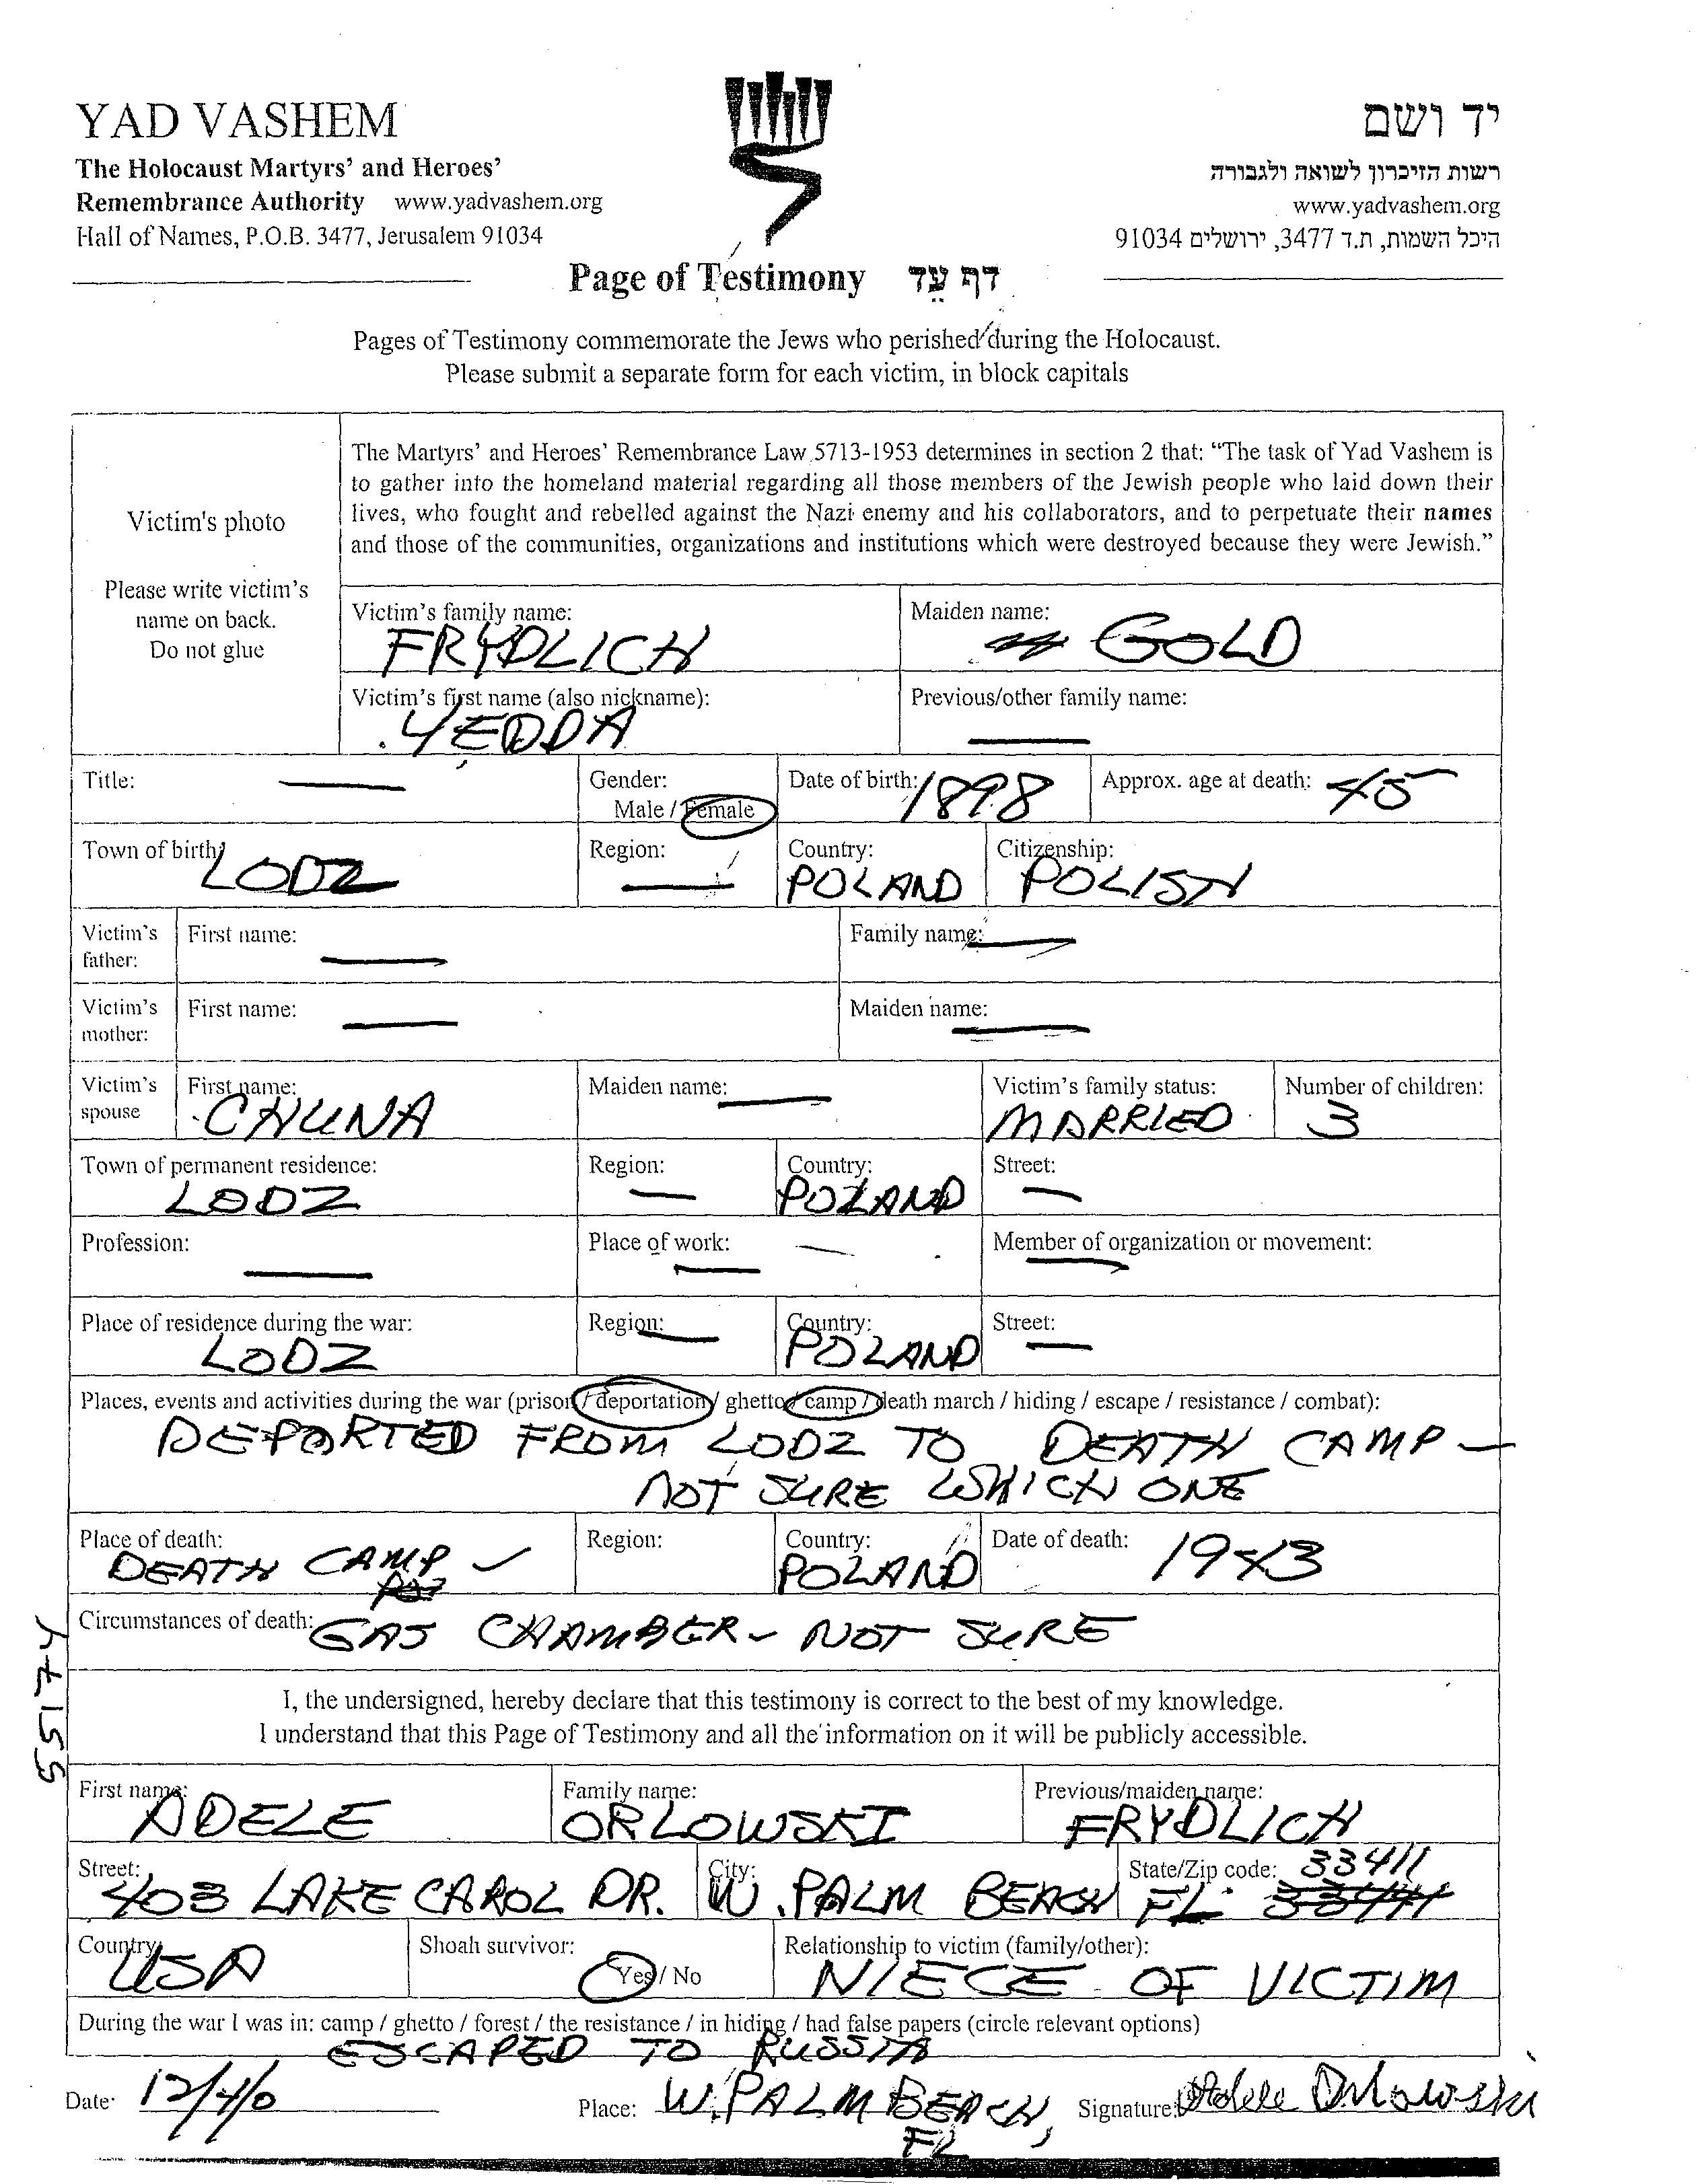 YAD VASHEM
The Holocaust Martyrs' and Heroes'
Remembrance Authority www.yadvashem.org
Hall of Names, P.O.B. 3477, Jerusalem 91034
יד ושם
רשות הזיכרון לשואה ולגבורה
www.yadvashem.org
היכל השמות, ת.ד 3477, ירושלים 91034
Page of Testimony דף עֵד
Pages of Testimony commemorate the Jews who perished during the Holocaust.
Please submit a separate form for each victim, in block capitals
Victim's photo
Please write victim's
name on back.
Do not glue
The Martyrs' and Heroes' Remembrance Law 5713-1953 determines in section 2 that: "The task of Yad Vashem is
to gather into the homeland material regarding all those members of the Jewish people who laid down their
lives, who fought and rebelled against the Nazi enemy and his collaborators, and to perpetuate their names
and those of the communities, organizations and institutions which were destroyed because they were Jewish."
Victim's family name: Maiden name:
FRYDLICH GOLD
Victim's first name (also nickname): Previous/other family name:
YEDDA
Title: Gender: Date of birth: 1898 Approx. age at death: 45
Male / Female
Town of birth: Region: Country: Citizenship:
LODZ POLAND POLISH
Victim's father: First name: Family name:
Victim's mother: First name: Maiden name:
Victim's spouse First name: Maiden name: Victim's family status: Number of children:
CHUNA MARRIED 3
Town of permanent residence: Region: Country: Street:
LODZ POLAND
Profession: Place of work: Member of organization or movement:
Place of residence during the war: Region: Country: Street:
LODZ POLAND
Places, events and activities during the war (prison / deportation / ghetto / camp / death march / hiding / escape / resistance / combat):
DEPORTED FROM LODZ TO DEATH CAMP –
NOT SURE WHICH ONE
Place of death: Region: Country: Date of death: 1943
DEATH CAMP – POLAND
Circumstances of death: GAS CHAMBER – NOT SURE
55174
I, the undersigned, hereby declare that this testimony is correct to the best of my knowledge.
I understand that this Page of Testimony and all the information on it will be publicly accessible.
First name: Family name: Previous/maiden name:
ADELE ORLOWSKI FRYDLICH
Street: City: State/Zip code: 33411
403 LAKE CAROL DR. W. PALM BEACH FL
Country: Shoah survivor: Relationship to victim (family/other):
USA Yes / No NIECE OF VICTIM
During the war I was in: camp / ghetto / forest / the resistance / in hiding / had false papers (circle relevant options)
ESCAPED TO RUSSIA
Date: Place: W. PALM BEACH, Signature: Adele Orlowski
FL